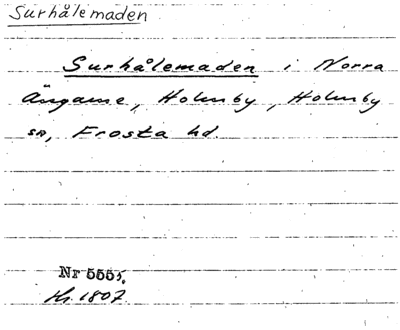 Surhålemaden
Surhålemaden i Norra
Ängarne, Holmby, Holmby
sn, Frosta hd.
Nr 5555.
Kr. 1807